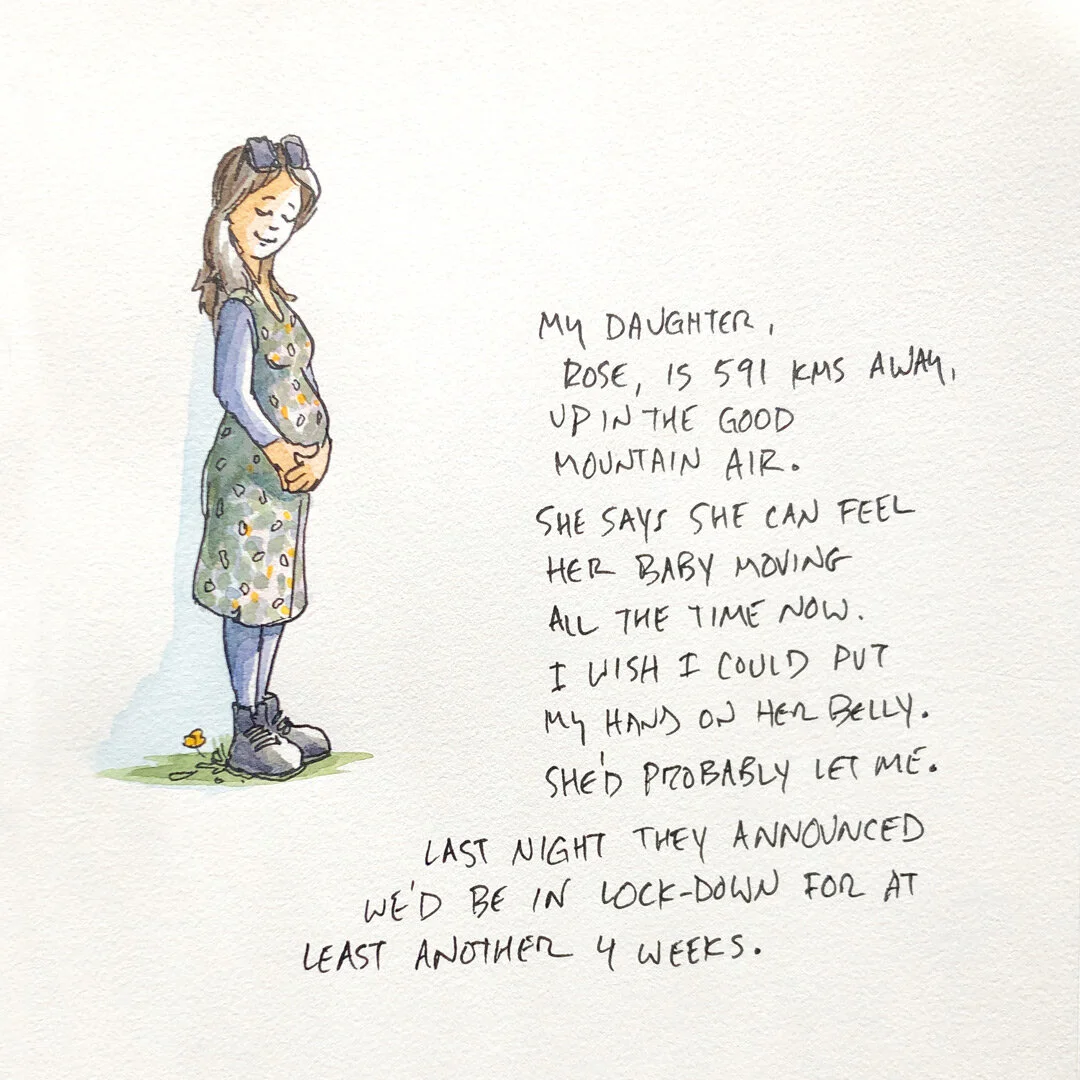 MY DAUGHTER,
ROSE, IS 591 KMS AWAY,
UP IN THE GOOD
MOUNTAIN AIR.
SHE SAYS SHE CAN FEEL
HER BABY MOVING
ALL THE TIME NOW.
I WISH I COULD PUT
MY HAND ON HER BELLY.
SHE'D PROBABLY LET ME.
LAST NIGHT THEY ANNOUNCED
WE'D BE IN LOCK-DOWN FOR AT
LEAST ANOTHER 4 WEEKS.